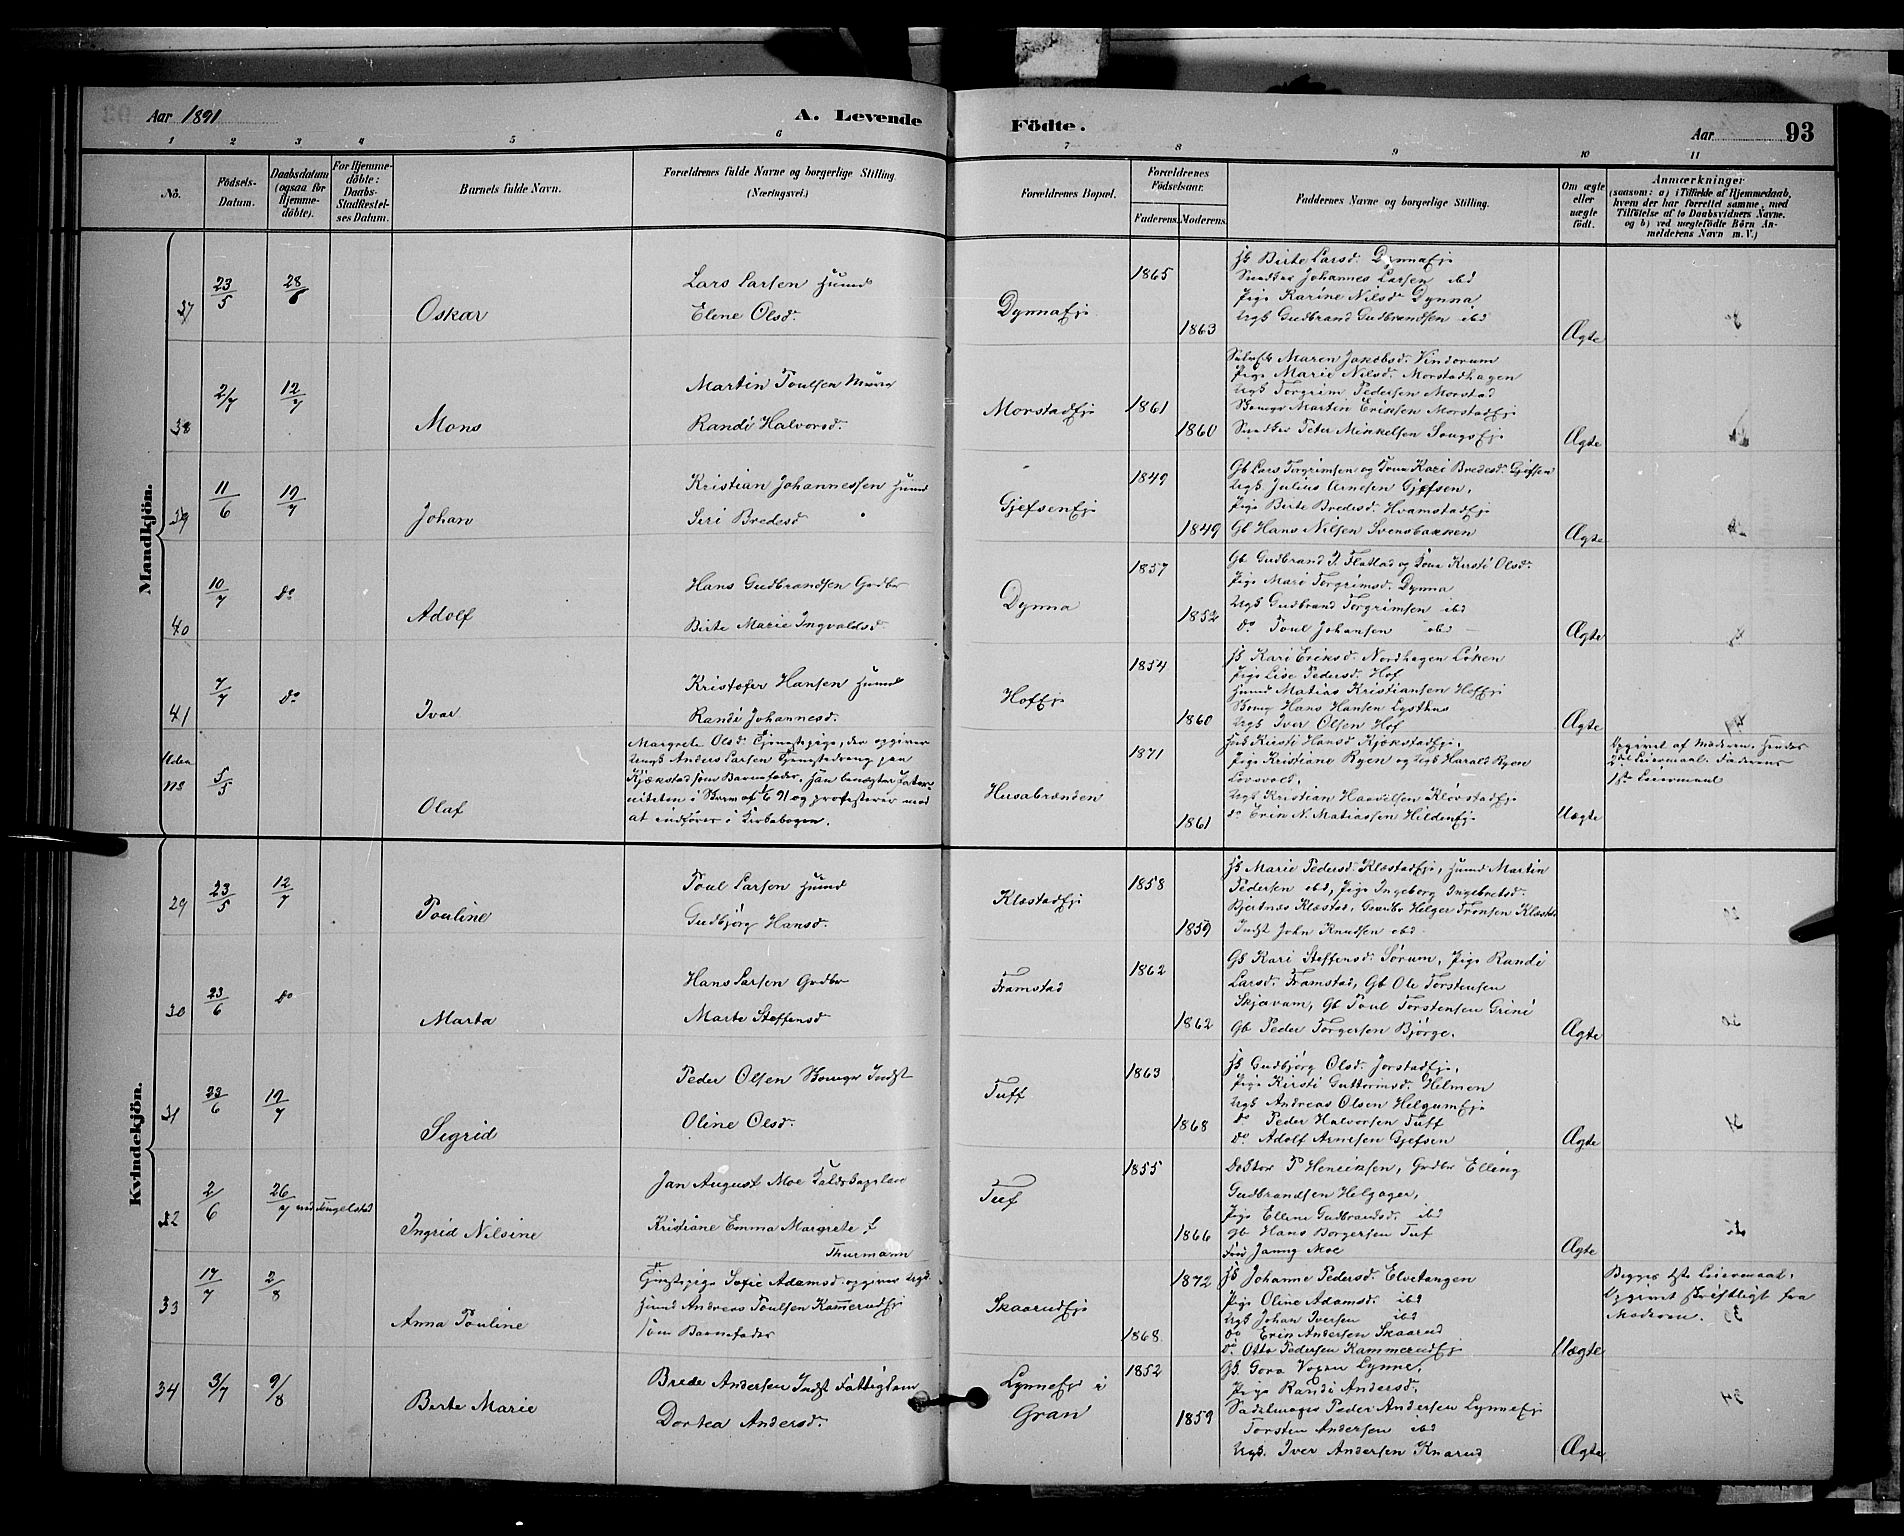 Aar 1891
A. Levende
Födte.
Aar 93
1 2 3 4 5 6 7 8 9 10 11
No.
Födsels-Datum.
Daabsdatum (ogsaa for Hjemme-döbte).
For Hjemme-döbte: Daabs-Stadfæstel-ses Datum.
Barnets fulde Navn.
Forældrenes fulde Navne og borgerlige Stilling (Næringsvei.)
Forældrenes Bopæl.
Forældrenes Födselsaar.
Faderens. Moderens.
Faddernes Navne og borgerlige Stilling.
Om ægte eller uægte födt.
Anmærkninger
(saasom: a) i Tilfælde af Hjemmedaab,
hvem der har forrettet samme, med
Tilföielse af to Daabsvidners Navne.
og b) ved uægtefödte Börn An-
melderens Navn m. V.)
Mandkjön.
37 23/5 28/6 Oskar
Lars Larsen Husmd
Elene Olsd.
Dynnaeje
1865
1863
Birte Larsd. Dynnaeje
Johannes Larsen ibd
Pige Karine Nilsd. Dynna
Ugk Gudbrand Gudbrandsen ibd
Ægte
38 2/7 12/7 Mons
Martin Poulsen Murer
Randi Halvorsd.
Morstadeje
1861
1860
Maren Jakobsd. Vindorum
Pige Marie Nilsd. Morstadhagen
Ugk Torgrim Pedersen Morstad
Martin Eriksen Morstadeje
Peter Mikkelsen
Ægte
39 11/6 19/7 Johan
Kristian Johannessen Husmd
Siri Bredesd
Gjefseneje
1849
1849
Gb Lars Torgrimsen og Kona Kari Bredesd. Gjefsen
Ugk. Julius Arnesen Gjefsen,
Pige Berte Bredesd. Hvamstadeje
Gb Hans Nilsen Svensbakken
Ægte
40 10/7 do Adolf
Hans Gudbrandsen Grdbr
Birte Marie Ingvaldsd
Dynna
1857
1852
Gb Gudbrand P. Flatlad og Kona Kirsti Olsd.
Pige Mari Torgrimsd. Dynna
Ugk Gudbrand Torgrimsen ibd
do Poul Johansen ibd
Ægte
41 7/7 do Ivar
Kristofer Hansen Husmd
Randi Johannesd.
Hofeje
1854
1860
Kari Eriksd. Nordhagen Löken
Pige Lise Pedersd. Hof
Husmd Matias Kristiansen Hofeje
Hans Hansen Lysthus
Ugk Iver Olsen Hof
Ægte
Uden
No 5/5 Olaf
Margrete Olsd. Tjenestepige, der opgiver
Ungk Anders Larsen Tjenestedreng paa
Kjækstad som Barnefader. Han benægter Pater-
niteten i Skrivn af 1/6 91 og protesterer mod
at indföres i Kirkebogen.
Husabrænden
1871
1861
Kirsti Hansd Kjækstadeje,
Pige Kristiane Ryen og Ugk Harald Ryen
Ugk Kristian Haavelsen Klövstadeje
do Erik N. Matiassen Hildeneje
Uægte
Opgivet af Moderen. Hendes
2det Leiermaal. Faderens
1ste Leiermaal
Kvindekjön.
29 23/5 12/7 Pouline
Poul Larsen Husmd
Gudbjörg Hansd.
Klæstadeje
1858
1859
Marie Pedersd. Klæstadeje, Husmd Martin
Pedersen ibd, Pige Ingeborg Ingebretsd.
Bjertnæs Klæstad, Helger Tronsen Klæstad
Indst John Knudsen ibd.
30 23/6 do Marta
Hans Larsen Grdbr
Marte Steffensd
Framstad
1862
1862
Gk Kari Steffensd. Sörum, Pige Randi
Larsd. Framstad, Gb Ole Torstensen
Skjævum, Gb Poul Torstensen Grini
Gb Peder Torgersen Björge.
Ægte
31 23/6 19/7 Sigrid
Peder Olsen Indst
Oline Olsd.
Tuff
1863
1868
Gudbjörg Olsd. Jorstadeje,
Pige Kirsti Guttormsd. Helmen
Ugk Andreas Olsen Helgumeje
do Peder Halvorsen Tuff
do Adolf Arnesen Gjefsen
Ægte
32 2/6 26/7 Ingrid Nilsine
Jan August Moe
Kristiane Emma Margrete f.
Thurmann
Tuf
1855
1866
Doktor P Henriksen, Grdbr Elling
Gudbrandsen Helgager,
Pige Ellene Gudbrandsd. ibd
Gb Hans Borgersen Tuf
Frk Janny Moe
Ægte
33 17/7 2/8 Anna Pouline
Tjenstepige Sofie Adamsd. opgiver Ugk.
Husmd Andreas Poulsen Kammerudeje
som Barnefader
Skaarudeje
1872
1868
Johanne Pedersd. Elvetangen
Pige Oline Adamsd. ibd
Ugk Johan Iversen ibd
do Erik Andersen Skaarud
do Otto Pedersen Kammerudeje
Uægte
Begges 1ste Leiermaal.
Opgivet skriftligt fra
Moderen.
34 3/7 9/8 Berte Marie
Brede Andersen Indst Fattiglem
Dortea Andersd.
Lynneeje i
Gran
1852
1859
Gk. Gora Vogen Lynne,
Pige Randi Andersd.
Sadelmager Peder Andersen Lynneeje
Torsten Andersen ibd
Ugk. Iver Andersen Knarud
Ægte